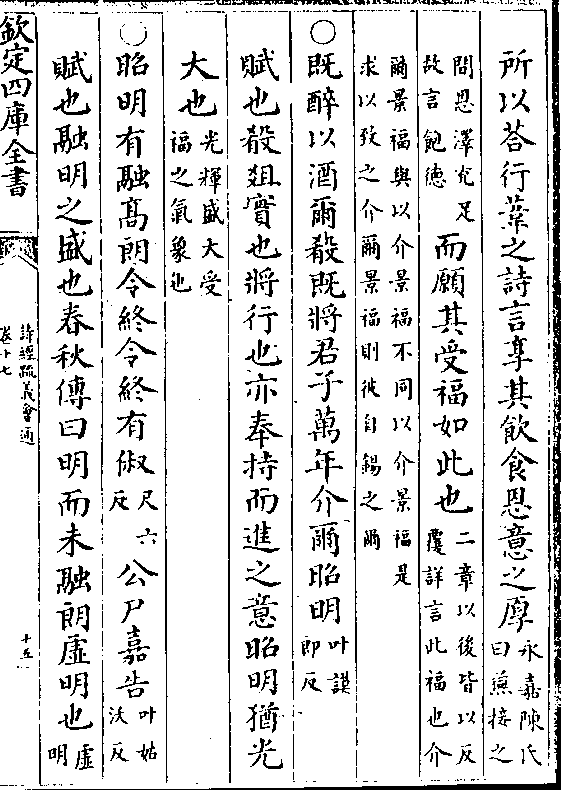 所以荅行葦之詩言享其飲食恩意之厚永嘉陳氏曰燕接之
問恩澤充足故言飽德而願其受福如此也二章以後皆以反覆詳言此福也介
爾景福與以介景福不同以介景福是求以致之介爾景福則彼自錫之爾
○既醉以酒爾殽既將君子萬年介爾昭明叶謨即反
賦也殽俎實也將行也亦奉持而進之意昭明猶光
大也光輝盛大受福之氣象也
○昭明有融髙朗令終令終有俶尺六反公尸嘉告叶姑沃反
賦也融明之盛也春秋傳曰明而未融朗虛明也虛明
欽定四庫全書
詩經疏義會通
卷十七
十五